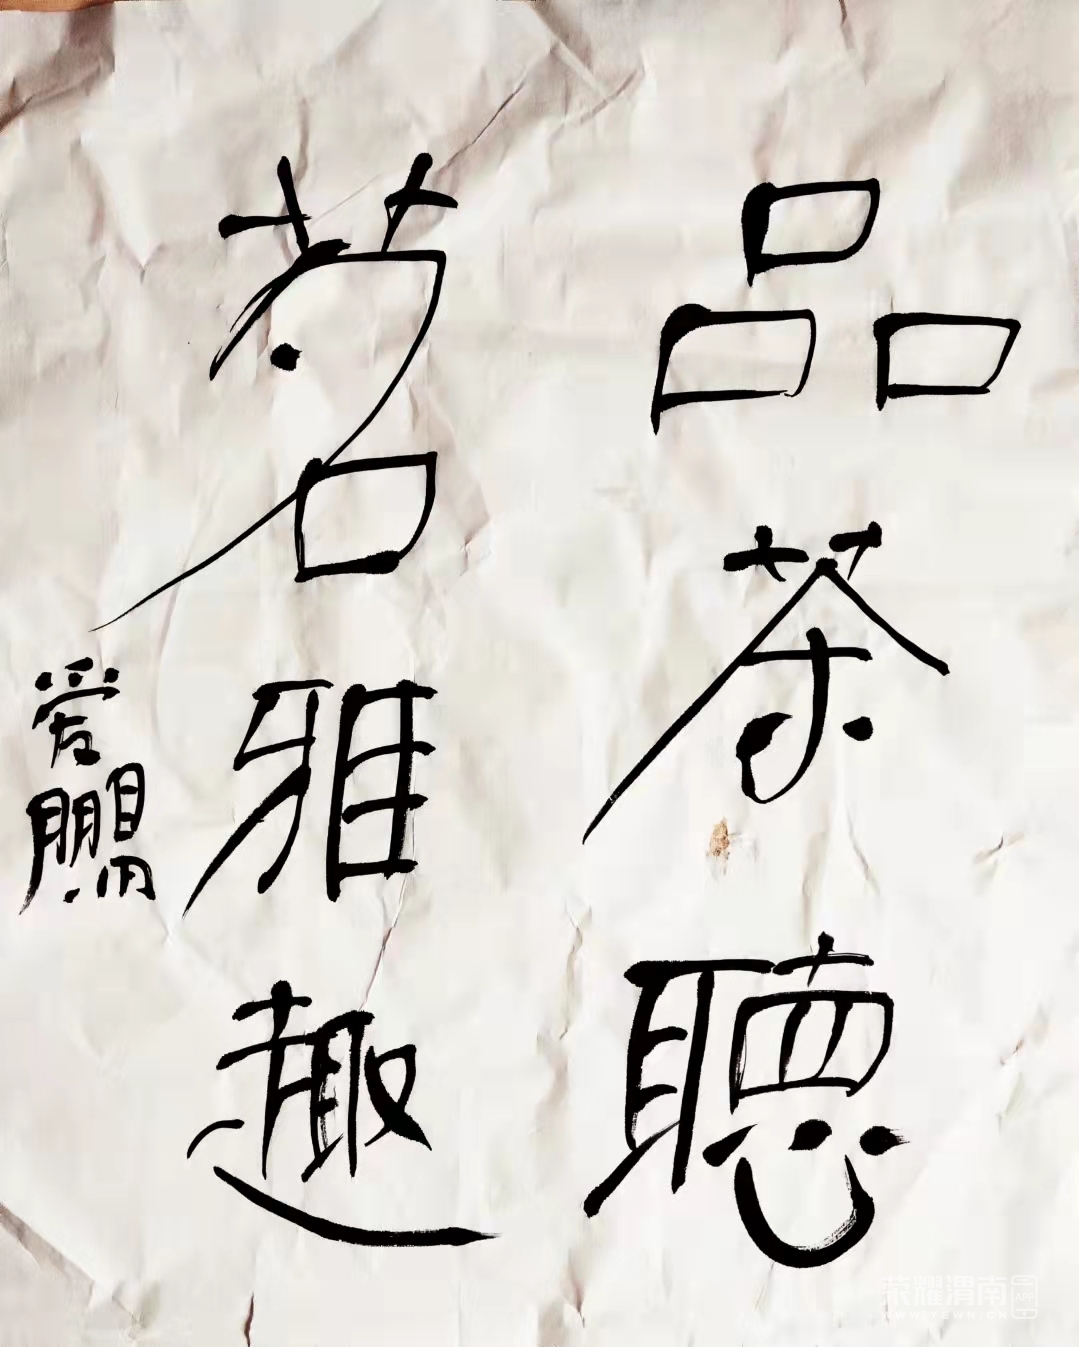 品茶聽
茗雅趣
爱鵬
荣耀渭南
APP